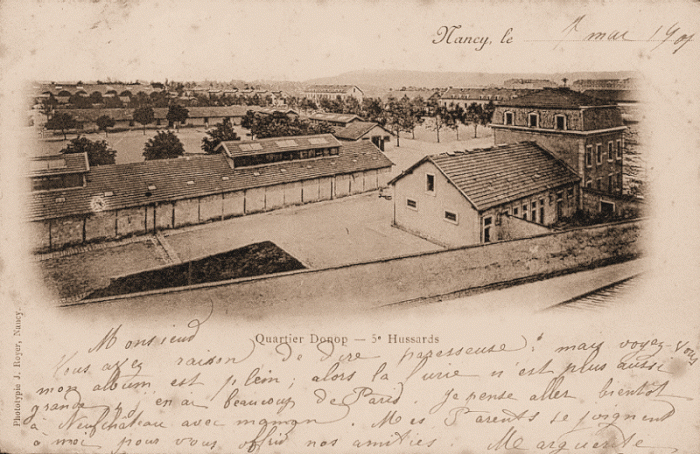 Nancy, le 1 mai 190
Phototypie J. Royer, Nancy.
Quartier Donop — 5e Hussards
Monsieur
Vous avez raison de dire paresseuse ! mais voyez-vous
mon album est plein ; alors la furie n'est plus aussi
grande en ai beaucoup de Paris. Je pense aller bientôt
à Neufchâteau avec maman. Mes Parents se joignent
à moi pour vous offrir nos amitiés Marguerite